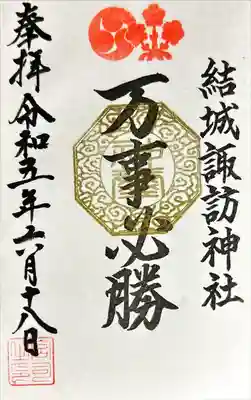 結城諏訪神社
万事必勝
奉拝令和五年十六月十八日